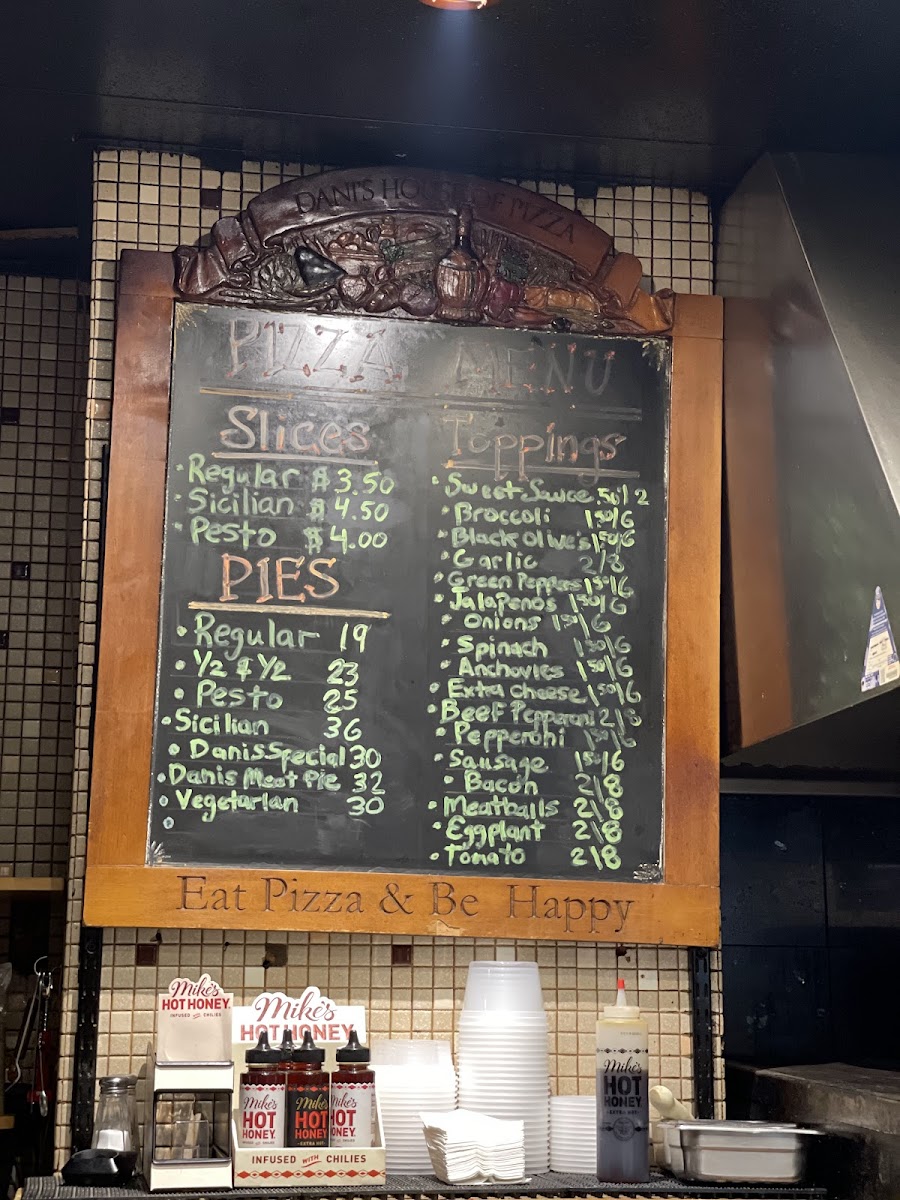 DANI'S HOUSE OF PIZZA
PIZZA MENU
Slices
• Regular $ 3.50
• Sicilian $ 4.50
• Pesto $ 4.00
PIES
• Regular 19
• 1/2 & 1/2 23
• Pesto 25
• Sicilian 36
• Danis Special 30
• Danis Meat Pie 32
• Vegetarian 30
Toppings
• Sweet Sauce .50/2
• Broccoli 1.50/6
• Black Olive's 1.50/6
• Garlic 2/8
• Green Peppers 1.50/6
• Jalapeno's 1.50/6
• Onions 1.50/6
• Spinach 1.50/6
• Anchovies 1.50/6
• Extra Cheese 1.50/6
• Beef Pepperoni 2/8
• Pepperoni 1.50/6
• Sausage 1.50/6
• Bacon 2\8
• Meatballs 2\8
• Eggplant 2\8
• Tomato 2\8
Eat Pizza & Be Happy
Mike's
HOT HONEY
INFUSED WITH CHILIES
Mike's
HOT HONEY
Mike's
HOT
HONEY
Mike's
HOT
HONEY
EXTRA HOT
Mike's
HOT
HONEY
INFUSED WITH CHILIES
Mike's
HOT
HONEY
EXTRA HOT